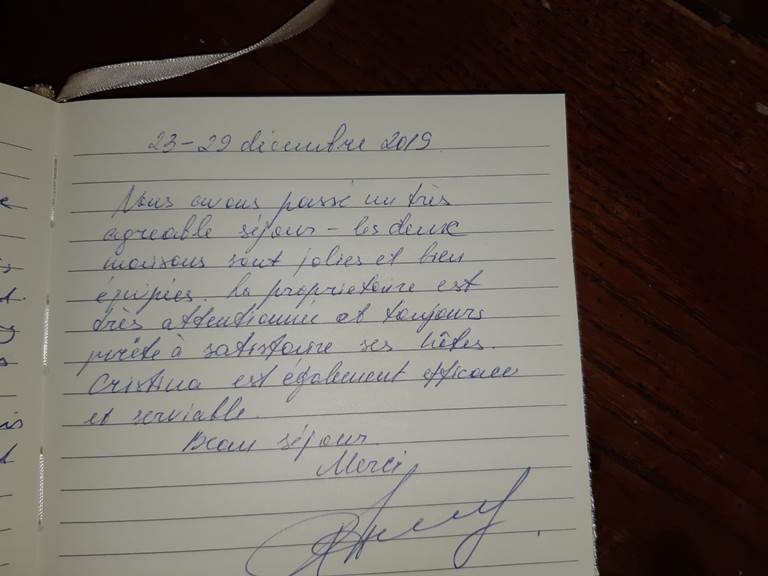 23-29 décembre 2019
Nous avons passé un très
agréable séjour - les deux
maisons sont jolies et bien
équipées. La propriétaire est
très attentionnée et toujours
prête à satisfaire ses hôtes.
Cristina est également efficace
et serviable.
Beau séjour.
Merci